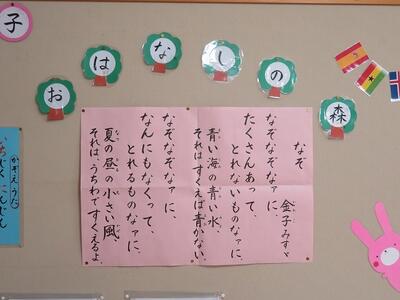 子
おはなしの森
なぞ
金子みすゞ
なぞなぞなァに、
たくさんあって、
とれないものなァに。
青い海の青い水、
それはすくえば青かない。
なぞなぞなァに、
なんにもなくって、
とれるものなァに。
夏の昼の小さい風、
それは、うちわですくえるよ。
かぞえうた
いちじくにんじん